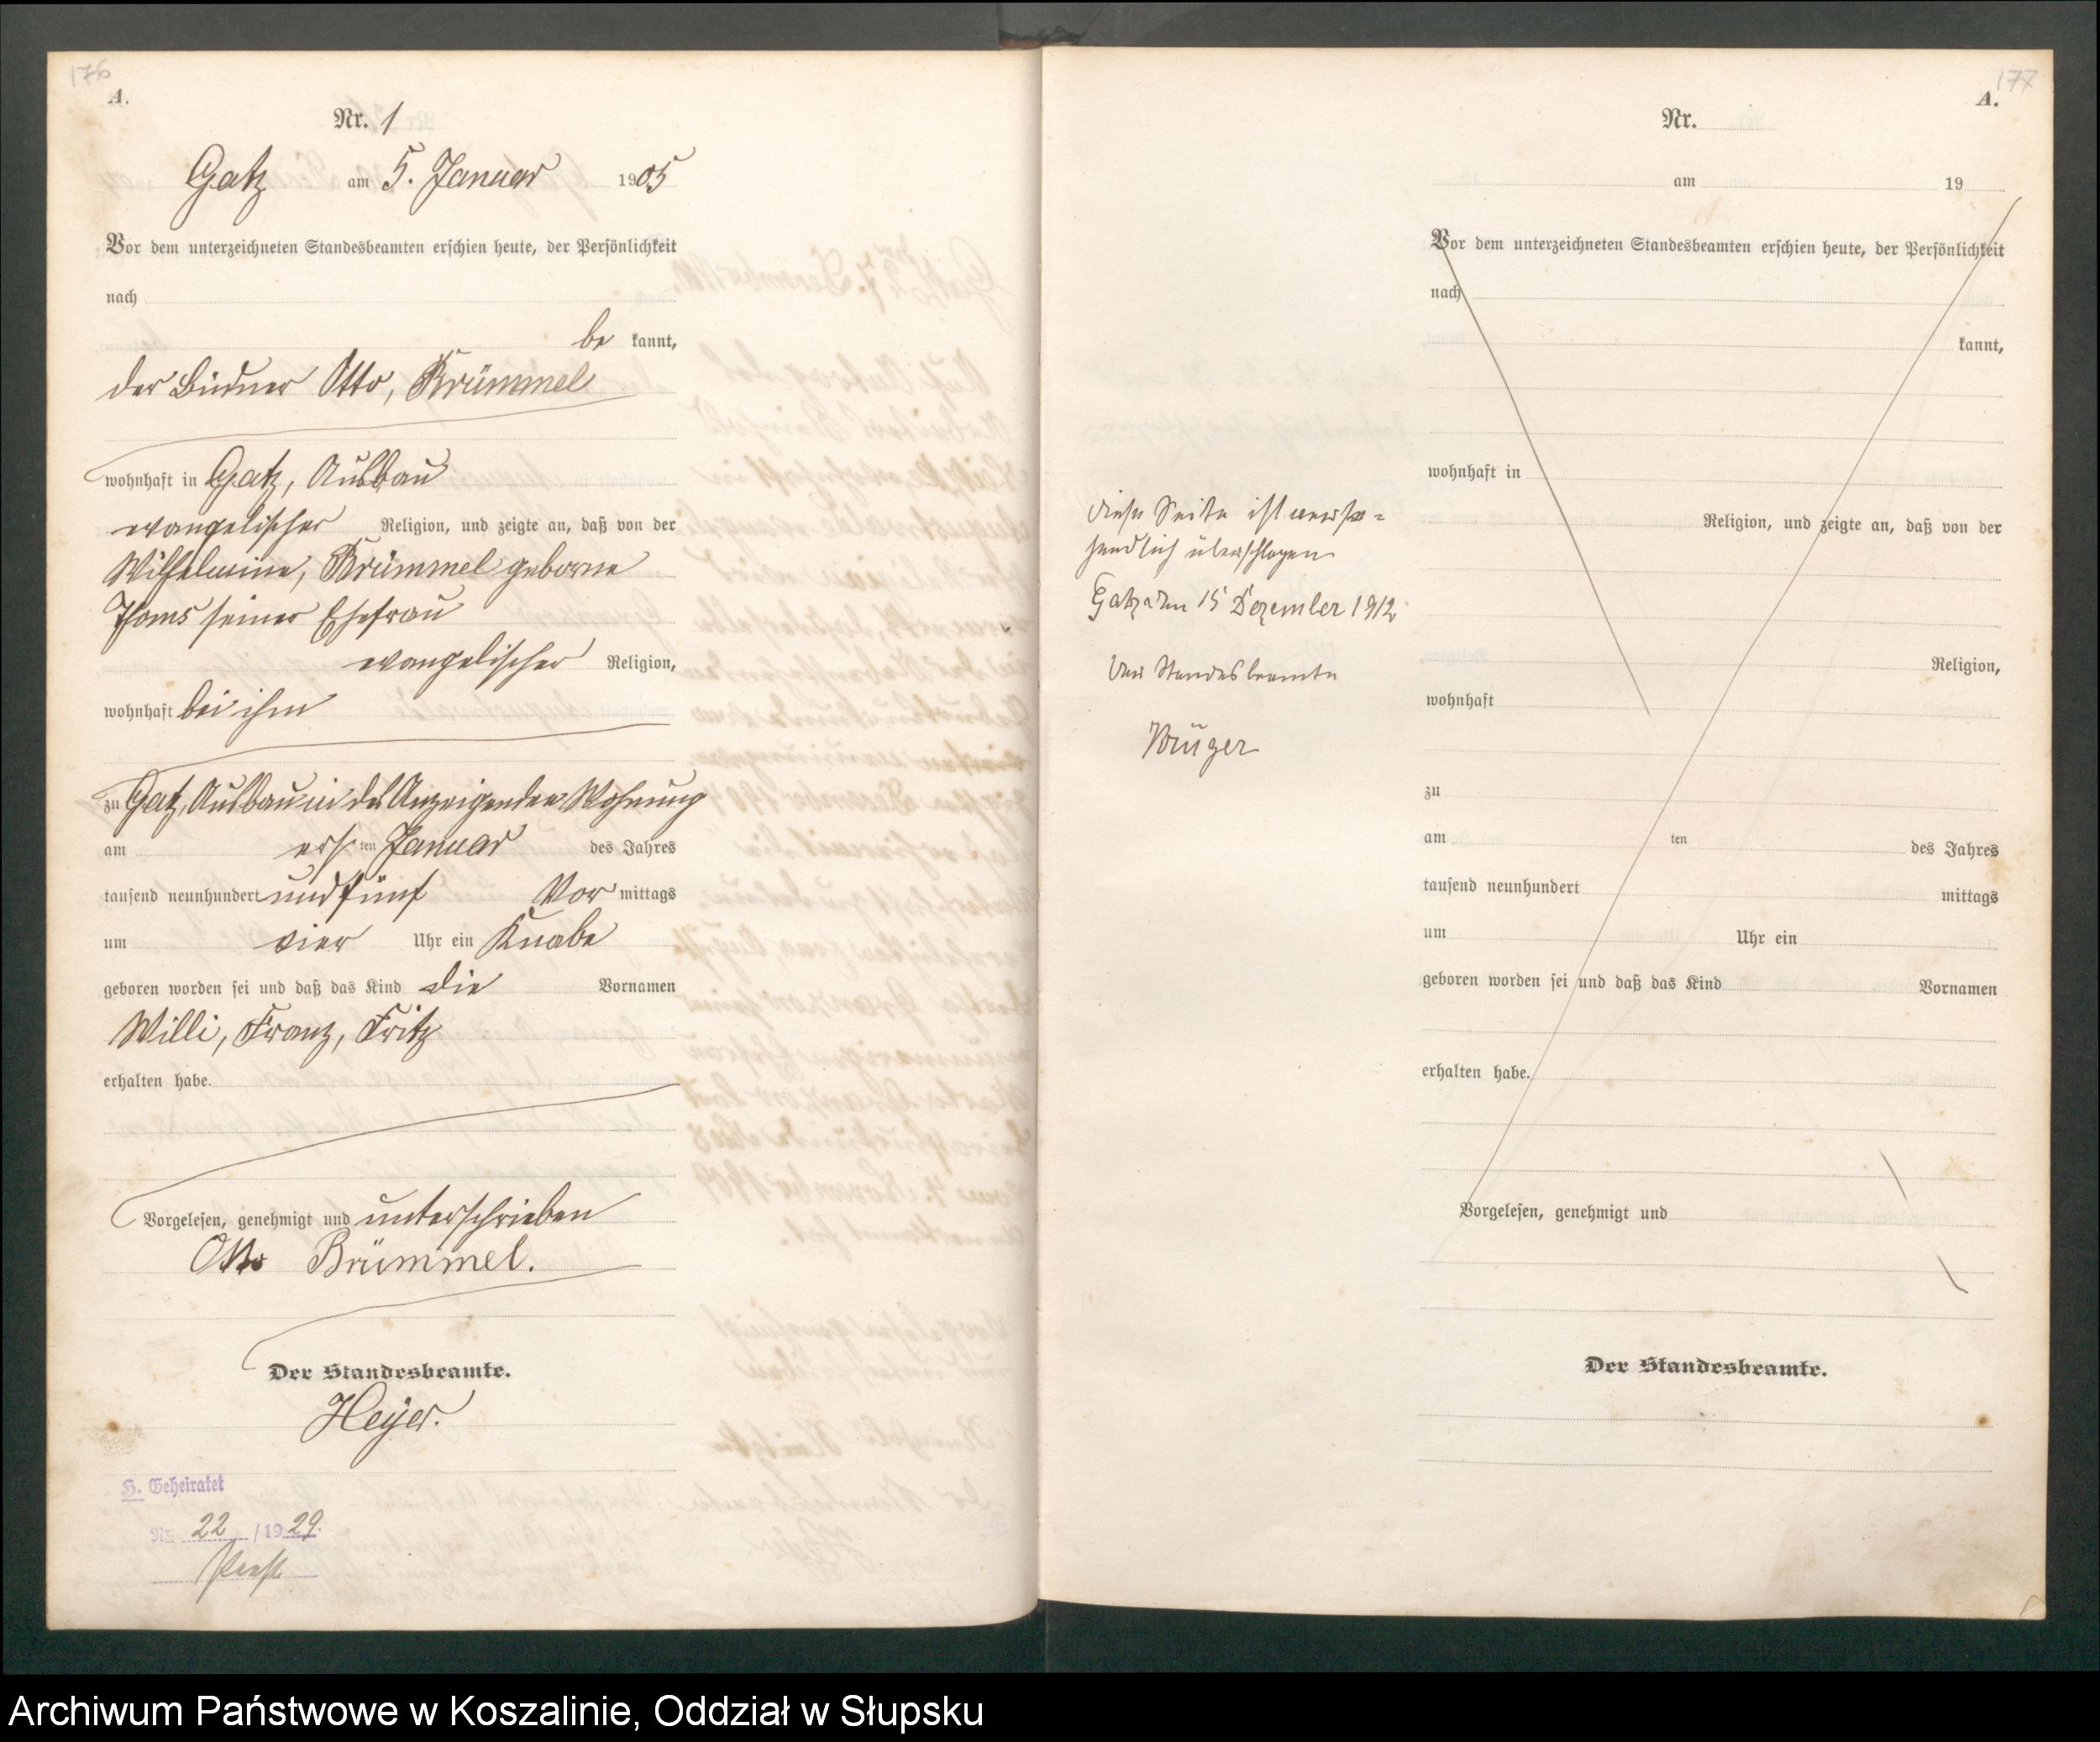 176
A.
Nr. 1
Gatz am 5. Januar 1905
Vor dem unterzeichneten Standesbeamten erschien heute, der Persönlichkeit
nach
be kannt,
der Büdner Otto, Brümmel
wohnhaft in Gatz, Ausbau
evangelischer Religion, und zeigte an, daß von der
Wilhelmine, Brümmel geborne
Thoms seiner Ehefrau
evangelischer Religion,
wohnhaft bei ihm
zu Gatz, Ausbau in des Anzeigenden Wohnung
am ersten Januar des Jahres
tausend neunhundert und fünf Vor mittags
um vier Uhr ein Knabe
geboren worden sei und daß das Kind die Vornamen
Willi, Franz, Fritz
erhalten habe.
Vorgelesen, genehmigt und unterschrieben
Otto Brümmel.
Der Standesbeamte.
Heyer.
H. Geheiratet
Nr. 22 / 1929.
177
A.
Nr.
am 19
Vor dem unterzeichneten Standesbeamten erschien heute, der Persönlichkeit
nach
kannt,
wohnhaft in
Religion, und zeigte an, daß von der
Religion,
wohnhaft
zu
am ten des Jahres
tausend neunhundert mittags
um Uhr ein
geboren worden sei und daß das Kind Vornamen
erhalten habe.
Vorgelesen, genehmigt und
Der Standesbeamte.
diese Seite ist verse=
hendlich überschlagen
Gatz den 15 Dezember 1912
Der Standesbeamte
Archiwum Państwowe w Koszalinie, Oddział w Słupsku